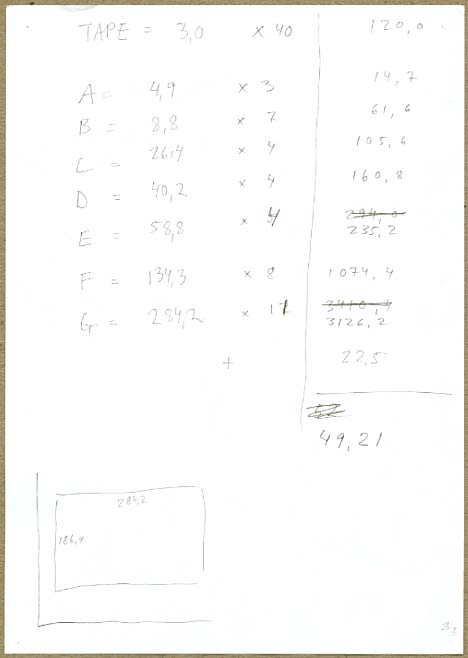 TAPE = 3,0 × 40 120,0
A = 4,9 × 3 14,7
B = 8,8 × 7 61,6
C = 26,4 × 4 105,6
D = 40,2 × 4 160,8
294,0
E = 58,8 × 4 235,2
F = 134,3 × 8 1074,4
3410,4
G = 284,2 × 11 3126,2
+ 22,5
49,21
284,2
186,4